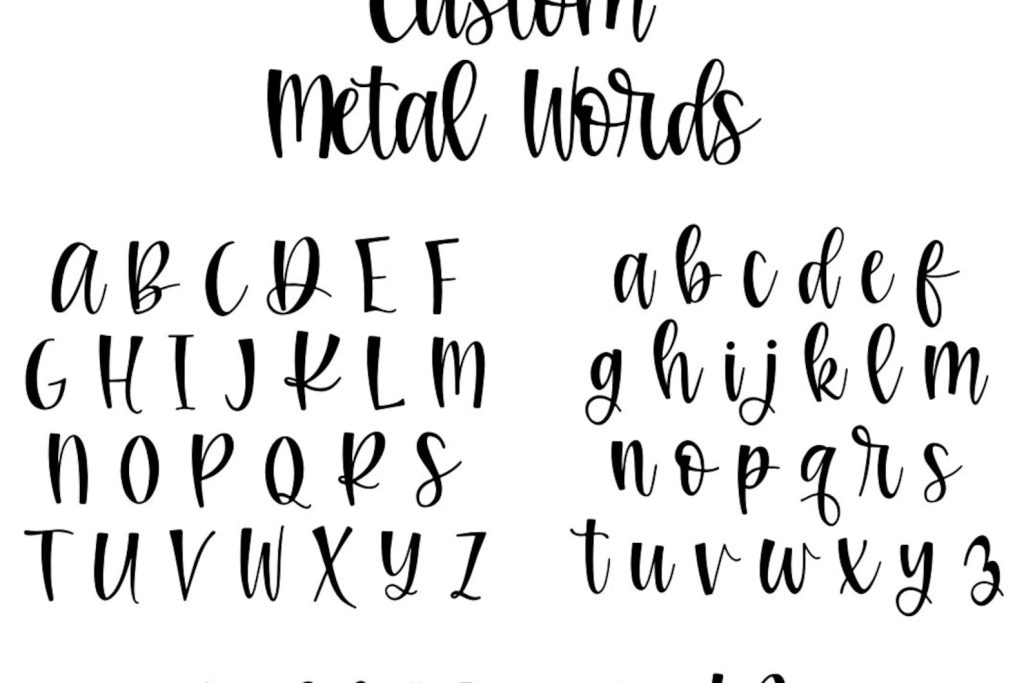 Custom
Metal Words
A B C D E F
G H I J K L M
N O P Q R S
T U V W X Y Z
a b c d e f
g h i j k l m
n o p q r s
t u v w x y z